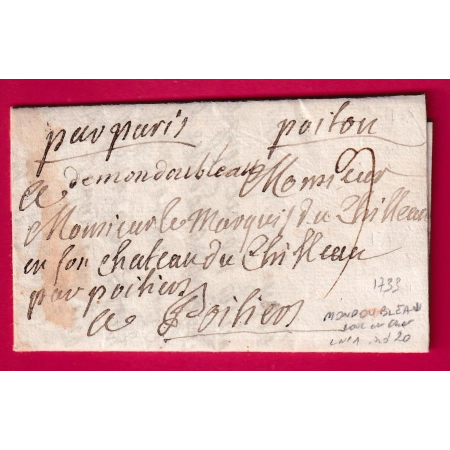 par paris poitou
a demondoubleau Monsieur
Monsieur le Marquis du Chilleau
en son chateau du Chilleau
par poitiers
a Poitiers
1733
MONDOUBLEAU
loir et cher
ind 20